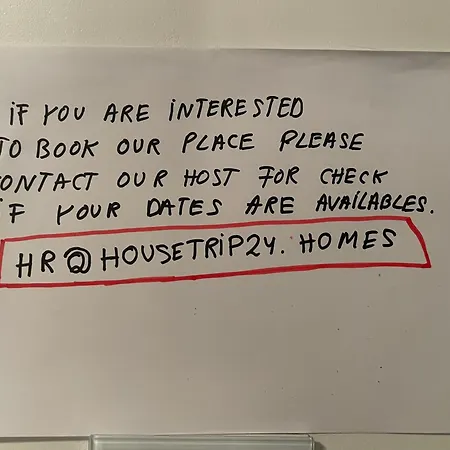 IF YOU ARE INTERESTED
TO BOOK OUR PLACE PLEASE
CONTACT OUR HOST FOR CHECK
IF YOUR DATES ARE AVAILABLES.
HR@HOUSETRIP24.HOMES